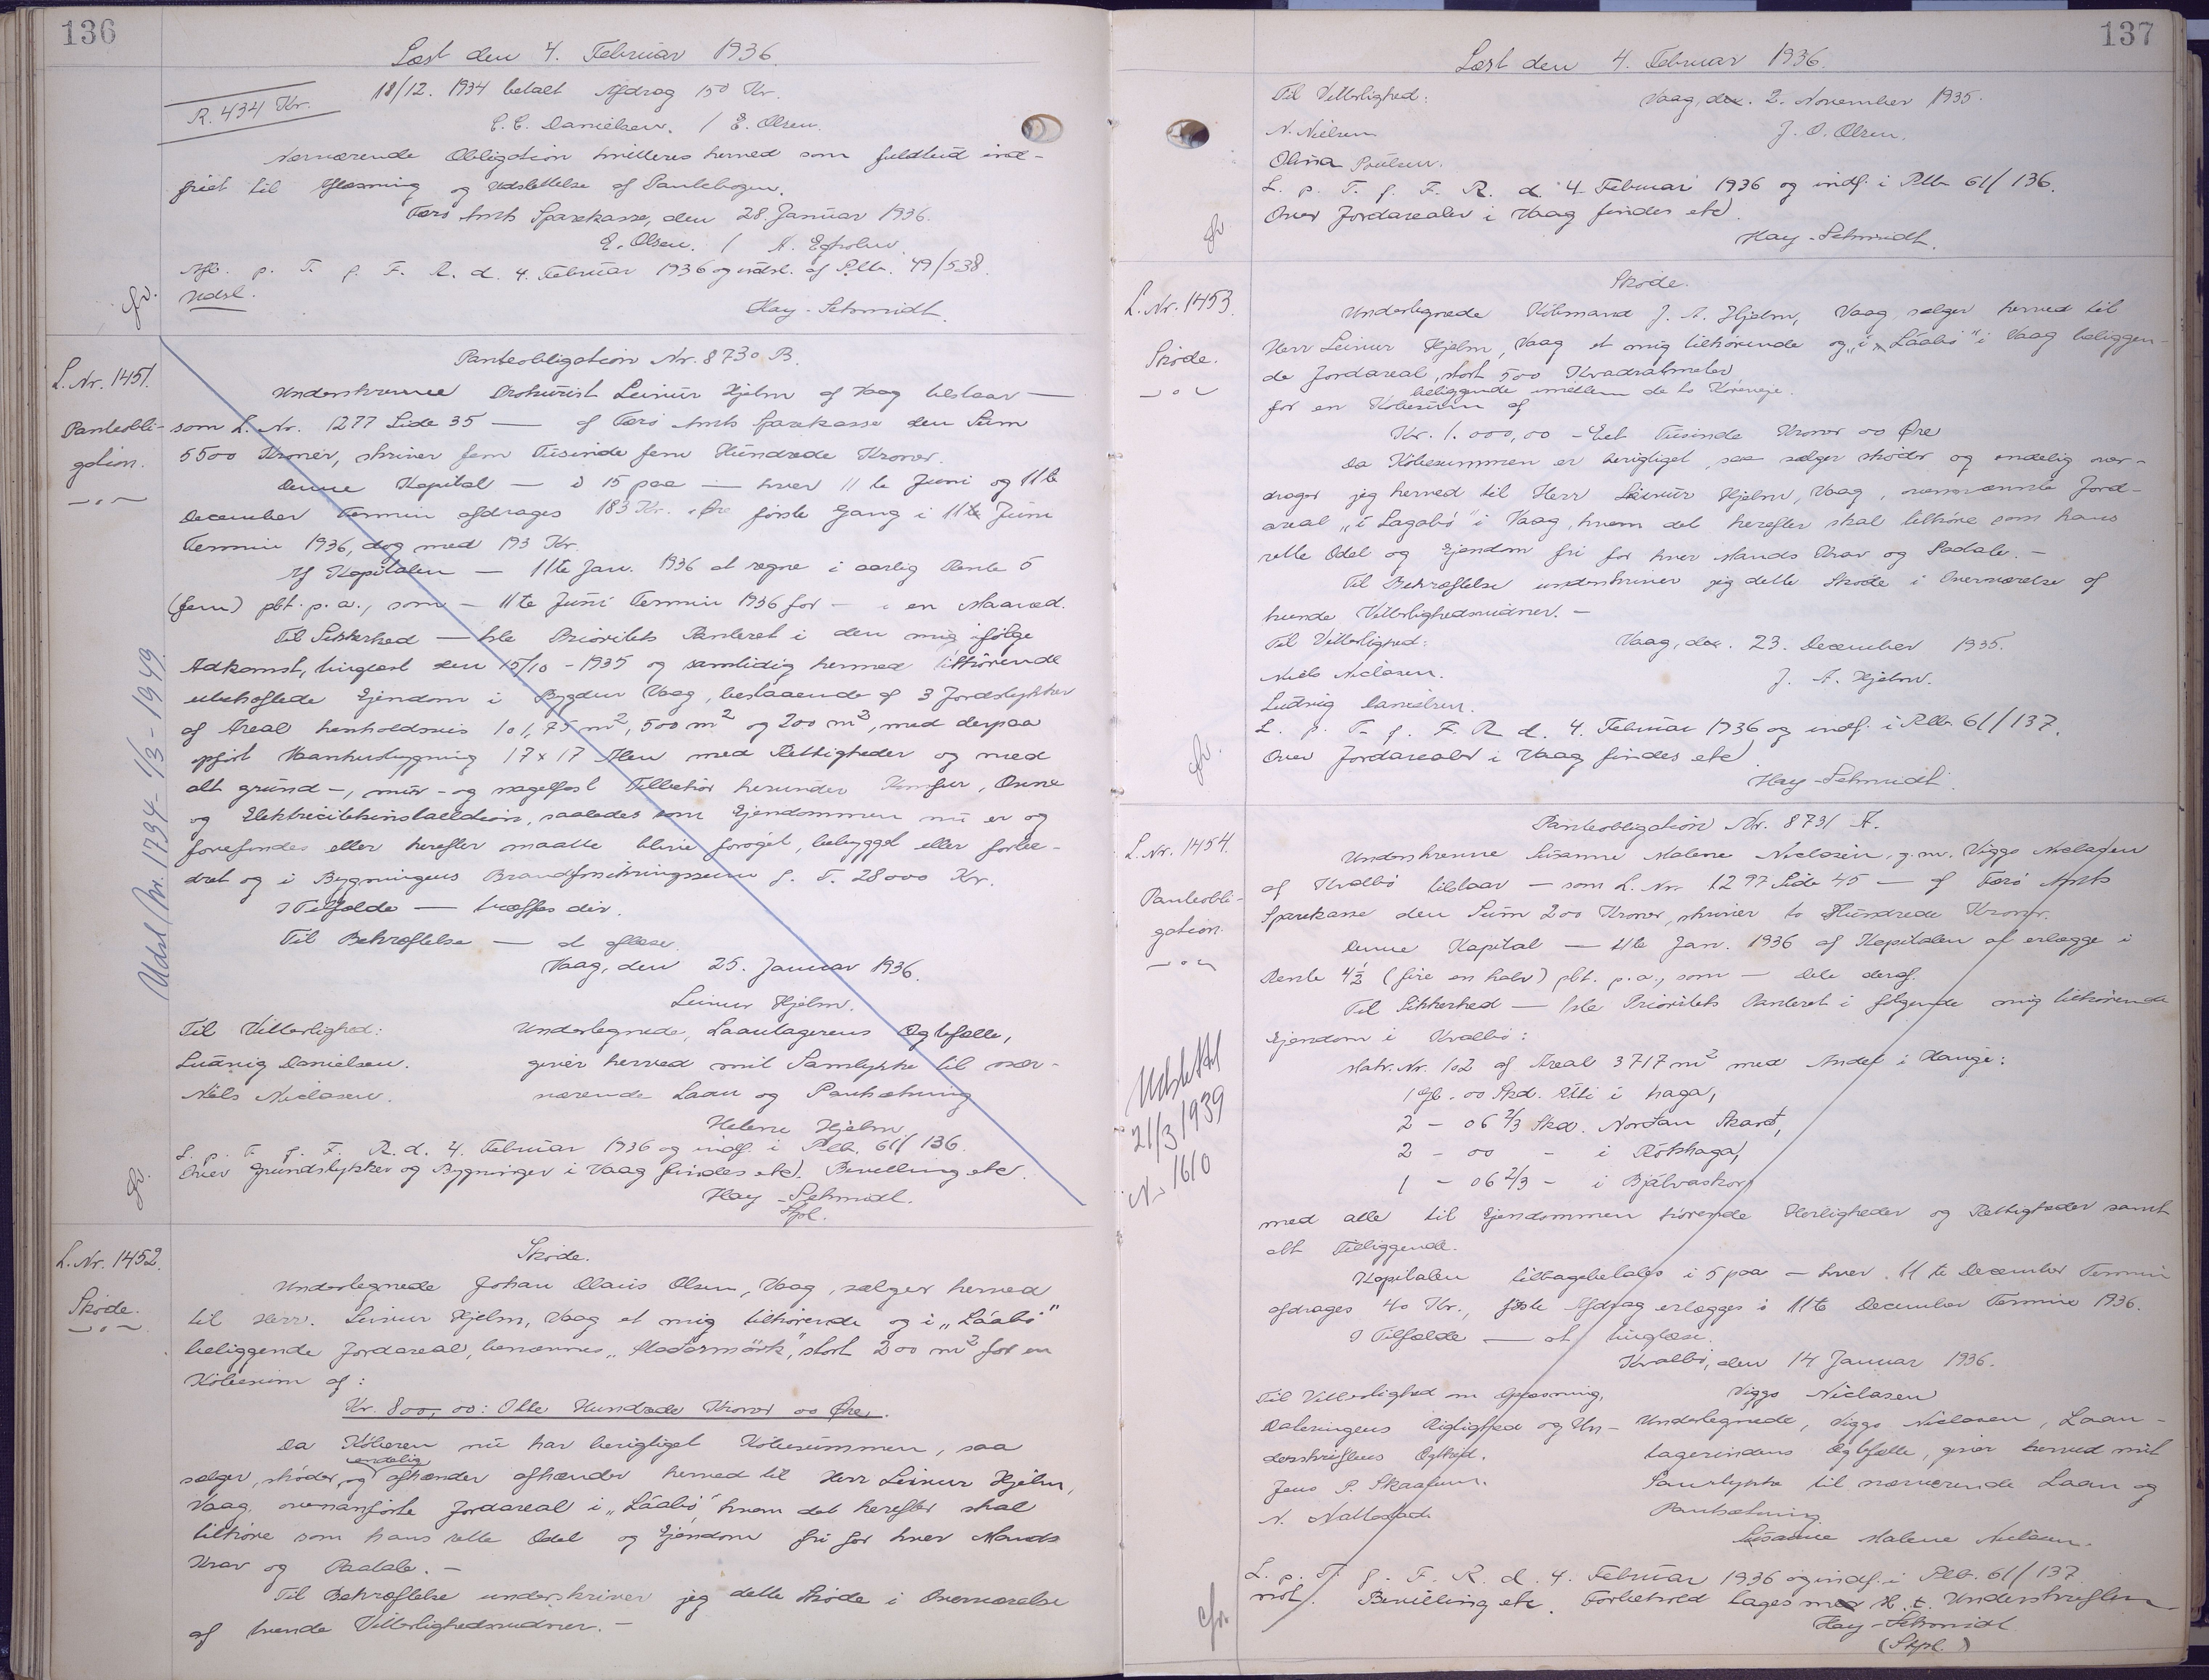 136
Læst den 4. Februar 1936.
R. 434 Kr.
18/12. 1934 betalt Afdrag 150 Kr.
C. C. Danielsen. / E. Olsen.
Nærværende Obligation kvitteres herved som fuldtud ind-
friet til Aflæsning og Udslettelse af Pantebogen.
Færø Amts Sparekasse, den 28. Januar 1936.
E. Olsen. / A. Egholm.
Afl. p. T. f. F. R. d. 4. Februar 1936 og udsl. af P.tb. 49/538.
Udsl.
Hay-Schmidt.
L. Nr. 1451.
Panteobli-
gation.
Udsl. Nr. 1794 - 1/3 - 1949.
Panteobligation Nr. 8730 B.
Underskrevne Prokurist Leinur Hjelm af Vaag tilstaar —
som L. Nr. 1277 Side 35 — af Færø Amts Sparekasse den Sum
5500 Kroner, skriver fem Tusinde fem Hundrede Kroner.
Denne Kapital — i 15 paa — hver 11te Juni og 11te
December Termin afdrages 183 Kr. Øre første Gang i 11te Juni
Termin 1936, dog med 193 Kr.
Af Kapitalen — 11te Jan. 1936 at regne i aarlig Rente 5
(fem) pCt. p. a., som — 11te Juni Termin 1936 for — en Maaned.
Til Sikkerhed — 1ste Prioritets Panteret i den mig ifølge
Adkomst, tinglæst den 15/10 - 1935 og samtidig hermed tilhørende
ubehæftede Ejendom i Bygden Vaag, bestaaende af 3 Jordstykker
af Areal henholdsvis 101,75 m², 500 m² og 200 m², med derpaa
opført Vaanhusbygning 17 x 17 Alen med Rettigheder og med
alt grund-, mur- og nagelfast Tilbehør herunder Komfur, Ovne
og Elektricitetsinstallation, saaledes som Ejendommen nu er og
forefindes eller herefter maatte blive forøget, bebygget eller forbe-
dret og i Bygningens Brandforsikringssum p. T. 28000 Kr.
I Tilfælde — træffes dér.
Til Bekræftelse — at aflæse.
Vaag, den 25. Januar 1936.
Leinur Hjelm.
Til Vitterlighed:
Ludvig Danielsen.
Niels Niclasen.
Undertegnede, Laantagerens Ægtefælle,
giver herved mit Samtykke til nær-
værende Laan og Pantsætning
Helene Hjelm
L. p. T. f. F. R. d. 4. Februar 1936 og indf. i P.tb. 61/136.
Over Grundstykker og Bygninger i Vaag findes etc). Bevilling etc.
Hay-Schmidt.
Stpl.
L. Nr. 1452.
Skøde.
Skøde.
Undertegnede Johan Olaus Olsen, Vaag, sælger herved
til Herr. Leinur Hjelm, Vaag et mig tilhørende og i „Láabø"
beliggende Jordareal, benævnes „Maðarmørk", stort 200 m² for en
Købesum af:
Kr. 800,00: Otte Hundrede Kroner 00 Øre.
Da Køberen nu har berigtiget Købesummen, saa
endelig
sælger, skøder, og afhænder afhænder herved til Herr Leinur Hjelm,
Vaag, ovenanførte Jordareal i „Láabø", hvem det herefter skal
tilhøre som hans rette Odel og Ejendom fri for hver Mands
Krav og Paatale. -
Til Bekræftelse underskriver jeg dette Skøde i Overværelse
af tvende Vitterlighedsvidner. -
137
Læst den 4. Februar 1936.
Til Vitterlighed:
Vaag, den. 2. November 1935.
N. Nielsen
J. O. Olsen.
Olina Poulsen.
L. p. T. f. F. R. d. 4. Februar 1936 og indf. i P.tb. 61/136.
Over Jordarealer i Vaag findes etc).
Hay-Schmidt.
L. Nr. 1453.
Skøde.
Skøde.
Undertegnede Købmand J. A. Hjelm, Vaag sælger herved til
Herr Leinur Hjelm, Vaag et mig tilhørende og „i Láabø" i Vaag beliggen-
de Jordareal, stort 500 Kvadratmeter
beliggende imellem de to Køreveje.
for en Købesum af
Kr. 1.000,00 - Eet Tusinde Kroner 00 Øre
Da Købesummen er berigtiget, saa sælger skøder og endelig over-
drager jeg herved til Herr Leinur Hjelm, Vaag, ovennævnte Jord-
areal „i Lagabø" i Vaag, hvem det herefter skal tilhøre som hans
rette Odel og Ejendom fri for hver Mands Krav og Paatale. -
Til Bekræftelse underskriver jeg dette Skøde i Overværelse af
tvende Vitterlighedsvidner. -
Til Vitterlighed:
Vaag, den. 23. December 1935.
Niels Niclasen.
J. A. Hjelm.
Ludvig Danielsen.
L. p. T. f. F. R. d. 4. Februar 1936 og indf. i P.tb. 61/137.
Over Jordarealer i Vaag findes etc)
Hay-Schmidt.
L. Nr. 1454.
Panteobli-
gation.
Udslettet
21/3 1939
Nr. 1610
Panteobligation Nr. 8731 A.
Underskrevne Susanne Malene Niclasen, g. m. Viggo Niclasen
af Kvalbø tilstaar — som L. Nr. 1297 Side 45 — af Færø Amts
Sparekasse den Sum 200 Kroner, skriver to Hundrede Kroner.
Denne Kapital — 11te Jan. 1936 af Kapitalen at erlægge i
Rente 4½ (fire en halv) pCt. p. a., som — dele deraf.
Til Sikkerhed — 1ste Prioritets Panteret i følgende mig tilhørende
Ejendom i Kvalbø:
Matr. Nr. 102 af Areal 3717 m² med Andel i Hauge:
1 Gl. 00 Skd. Uti i haga,
2 - 06 2/3 Skd. Norðan Skarð,
2 - 00 - i Rótshaga,
1 - 06 2/3 - i Bjálvaskor,
med alle til Ejendommen hørende Herligheder og Rettigheder samt
alt Tilliggende.
Kapitalen tilbagebetales i 5 paa — hver 11te December Termin
afdrages 40 Kr., første Afdrag erlægges i 11te December Termin 1936.
I Tilfælde — at tinglæse.
Kvalbø, den 14 Januar 1936.
Til Vitterlighed om Oplæsning,
Dateringens Rigtighed og Un-
derskriftens Ægthed.
Jens P. Skaalum.
N. Nattestad
Viggo Niclasen
Undertegnede, Viggo Niclasen, Laan-
tagerindens Ægtefælle, giver herved mit
Samtykke til nærværende Laan og
Pantsætning.
Susanne Malene Nielsen.
L. p. T. f. F. R. d. 4. Februar 1936 og indf. i P.tb. 61/137
not. Bevilling etc. Forbehold tages m. H. t. Underskriften
Hay-Schmidt
(Stpl.)